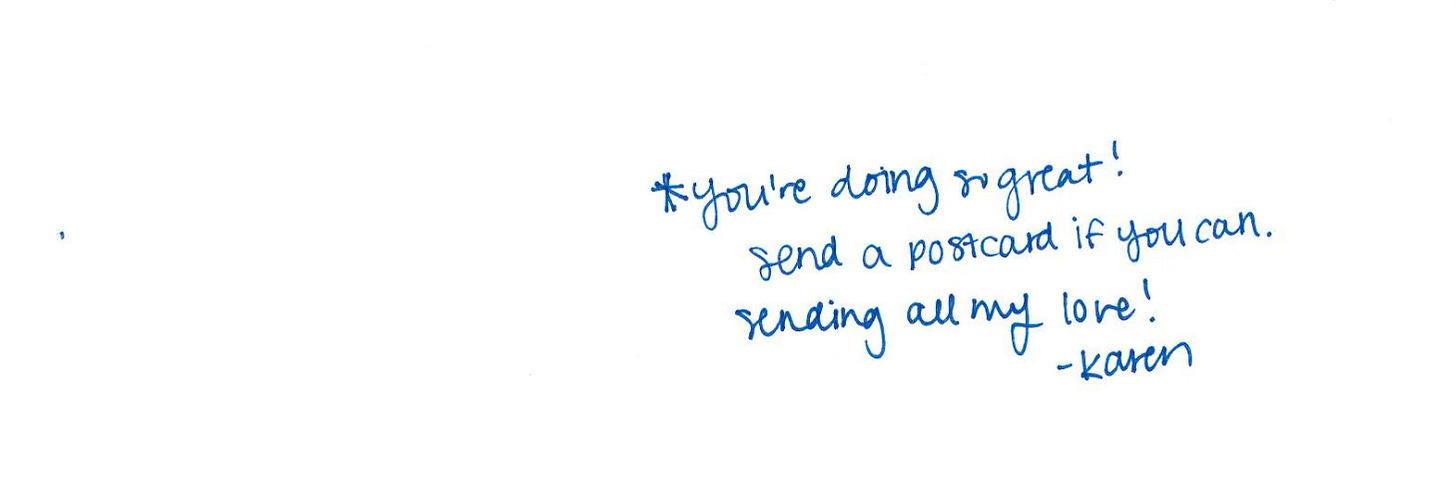 *you're doing so great!
send a postcard if you can.
sending all my love!
-karen